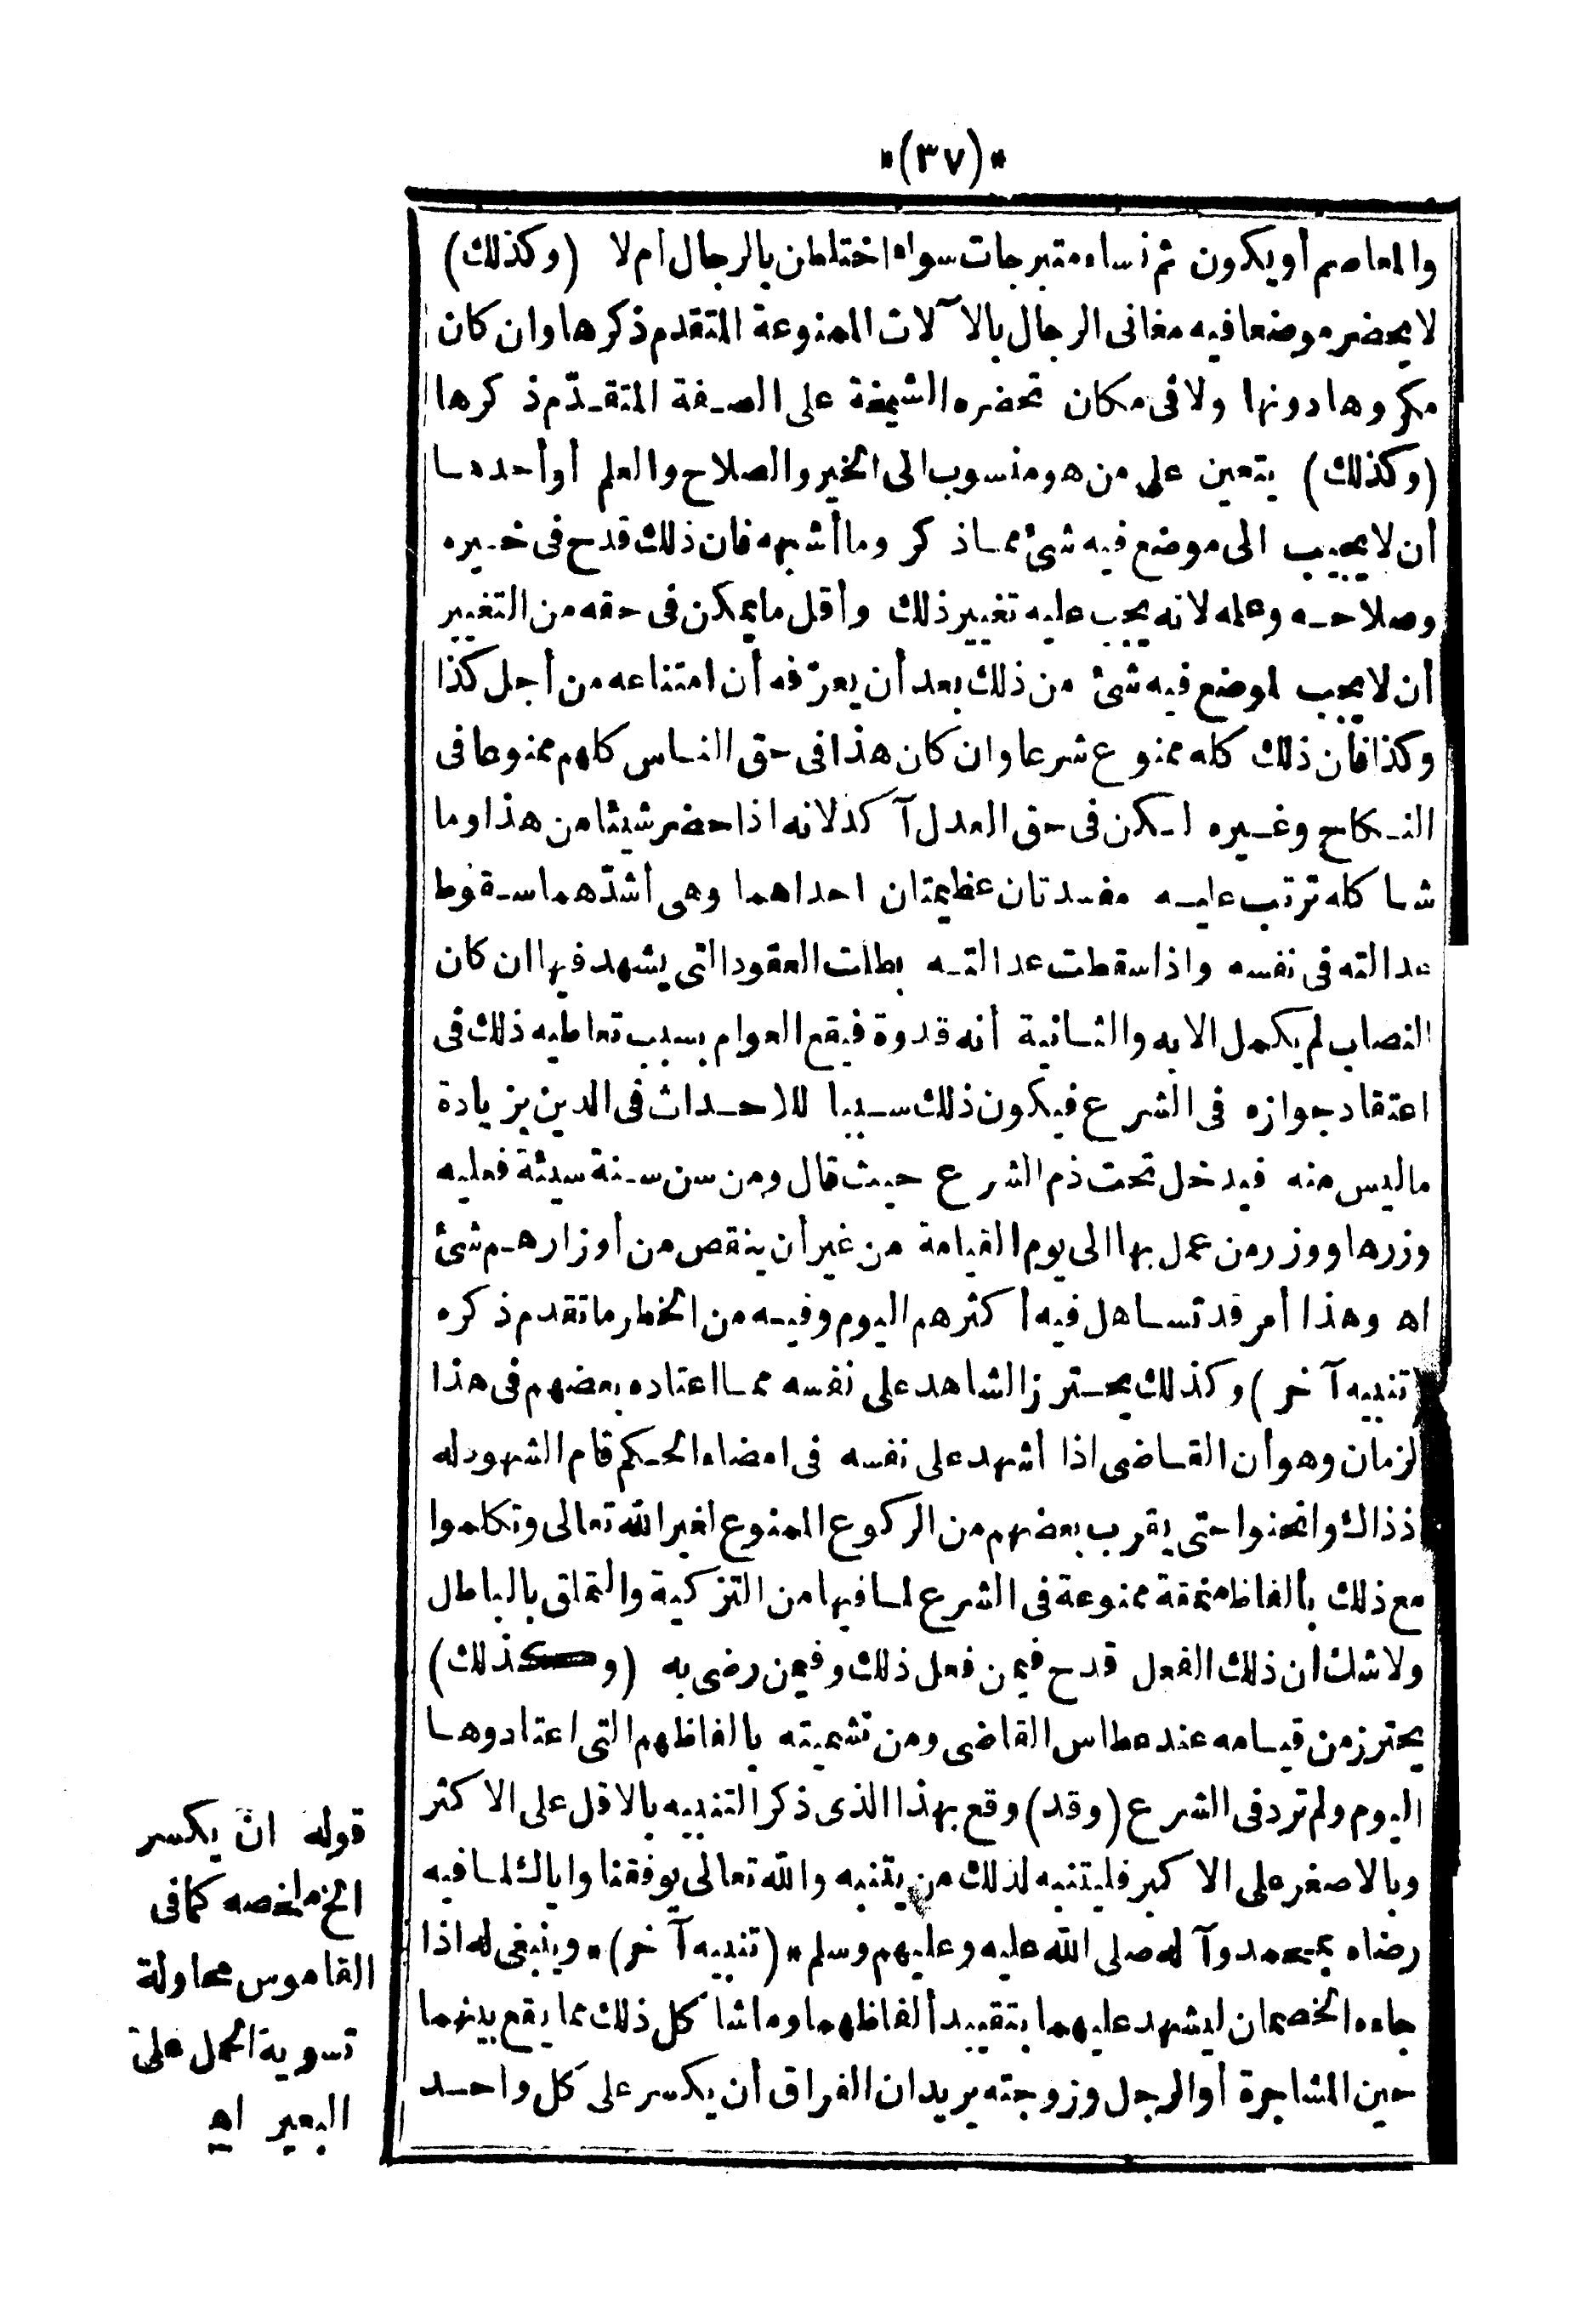 «(٣٧)»
والمعاصم أو يكون ثم نساء متبرجات سواء اختلطن بالرجال أم لا (وكذلك)
لا يحضر موضعا فيه مغانى الرجال بالآلات الممنوعة المتقدم ذكرها وان كان
مكروها دونها ولا فى مكان تحضره الشيخة على الصفة المتقدّم ذكرها
(وكذلك) يتعين على من هو منسوب الى الخير والصلاح والعلم أو أحدهما
أن لا يجيب الى موضع فيه شئ مما ذكر وما أشبهه فان ذلك قدح فى خيره
وصلاحه وعلمه لانه يجب عليه تغيير ذلك وأقل ما يمكن فى حقه من التغيير
أن لا يجب لموضع فيه شئ من ذلك بعد أن يعرّفه أن امتناعه من أجل كذا
وكذا فان ذلك كله ممنوع شرعا وان كان هذا فى حق الناس كلهم ممنوعا فى
النكاح وغيره لكن فى حق العدل آكد لانه اذا حضر شيئا من هذا وما
شاكله ترتب عليه مفسدتان عظيمتان احداهما وهى أشدّهما سقوط
عدالته فى نفسه واذا سقطت عدالته بطلت العقود التى يشهد فيها ان كان
النصاب لم يكمل الا به والثانية أنه قدوة فيقع العوام بسبب تعاطيه ذلك فى
اعتقاد جوازه فى الشرع فيكون ذلك سببا للاحداث فى الدين بزيادة
ما ليس منه فيدخل تحت ذم الشرع حيث قال ومن سن سنة سيئة فعليه
وزرها ووزر من عمل بها الى يوم القيامة من غير أن ينقص من أوزارهم شئ
اه وهذا أمر قد تساهل فيه أكثرهم اليوم وفيه من الخطر ما تقدم ذكره
(تنبيه آخر) وكذلك يحترز الشاهد على نفسه مما اعتاده بعضهم فى هذا
الزمان وهو أن القاضى اذا أشهد على نفسه فى امضاء الحكم قام الشهود له
اذ ذاك وانحنوا حتى يقرب بعضهم من الركوع الممنوع لغير الله تعالى وتكلموا
مع ذلك بألفاظ منمقة ممنوعة فى الشرع لما فيها من التزكية والتملق بالباطل
ولا شك ان ذلك الفعل قدح فيمن فعل ذلك وفيمن رضى به (وكذلك)
يحترز من قيامه عند عطاس القاضى ومن تشميته بالفاظهم التى اعتادوها
اليوم ولم ترد فى الشرع (وقد) وقع بهذا الذى ذكر التنبيه بالاقل على الاكثر
وبالاصغر على الاكبر فليتنبه لذلك من يتنبه والله تعالى يوفقنا واياك لما فيه
رضاه بمحمد وآله صلى الله عليه وعليهم وسلم «(تنبيه آخر)» وينبغى له اذا
جاءه الخصمان ليشهد عليهما بتقييد ألفاظهما وما شاكل ذلك مما يقع بينهما
حين المشاجرة أو الرجل وزوجته يريدان الفراق أن يكسر على كل واحد
قوله ان يكسر
الخ ملخصه كما فى
القاموس محاولة
تسوية الحمل على
البعير اه